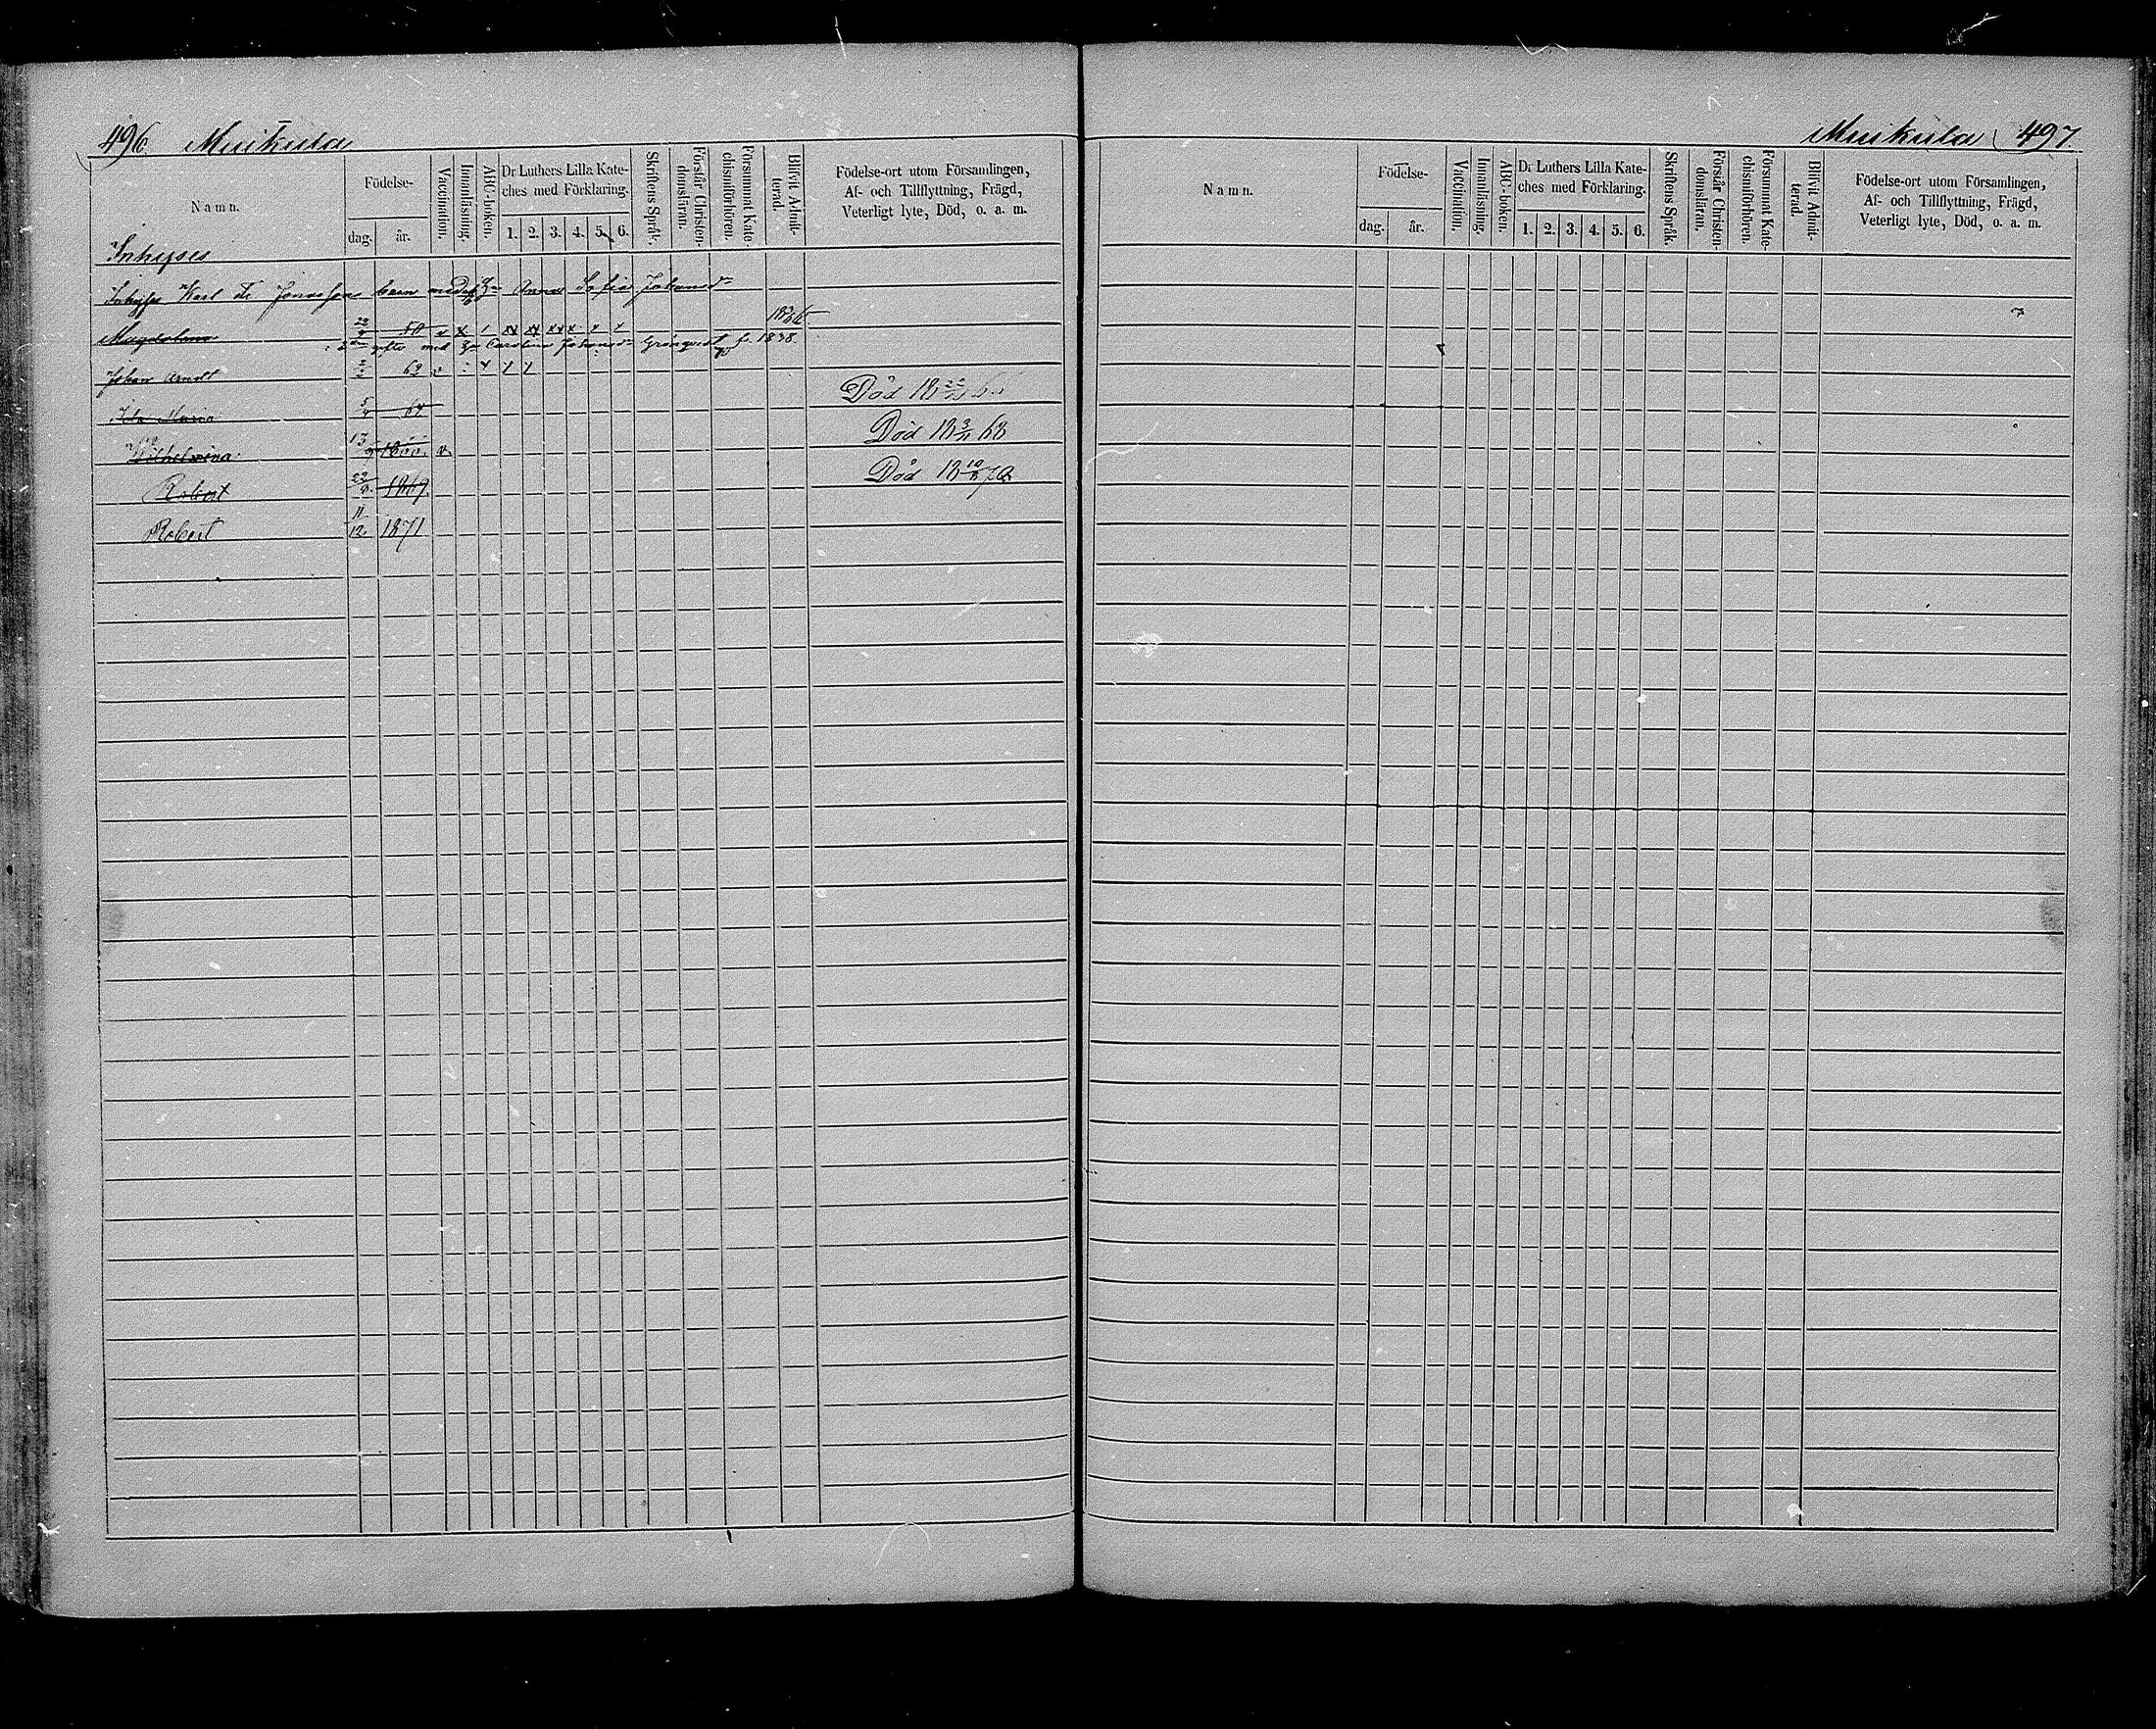 496. Muikula
Namn.
Födelse-
dag. år.
Vaccination.
Innanläsning.
ABC-boken.
Dr Luthers Lilla Kate-
ches med Förklaring.
1. 2. 3. 4. 5. 6.
Skriftens Språk.
Förstår Christen-
domsläran.
Försummat Kate-
chismiförhören.
Blifvit Admit-
terad.
Födelse-ort utom Församlingen,
Af- och Tillflyttning, Frägd,
Veterligt lyte, Död, o. a. m.
Inhyses
Inhyses Karl Fr Jonasson barn med Anna Sofia Johansd
Magdalena 22 50 v x
gifte med Carolina Johansd Grönqvist f. 1838
Johan Arndt 62 v
Ida Maria 5 64 Död 18
Wilhelmina 13 v Död 18 68
Robert 22 1869 Död 18 70
Robert 11/12 1871
Muikula 497
Namn.
Födelse-
dag. år.
Vaccination.
Innanläsning.
ABC-boken.
Dr Luthers Lilla Kate-
ches med Förklaring.
1. 2. 3. 4. 5. 6.
Skriftens Språk.
Förstår Christen-
domsläran.
Försummat Kate-
chismiförhören.
Blifvit Admit-
terad.
Födelse-ort utom Församlingen,
Af- och Tillflyttning, Frägd,
Veterligt lyte, Död, o. a. m.